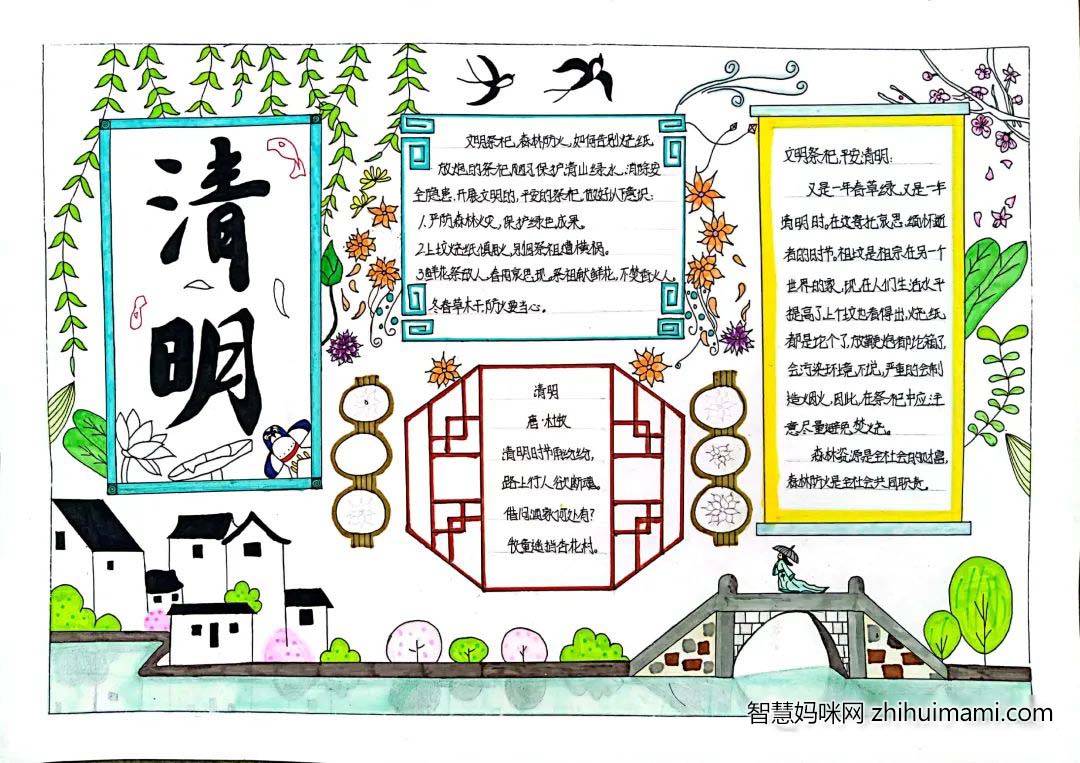 清明
文明祭祀,森林防火,如何告别烧纸
放炮的祭祀陋习保护清山绿水,消除安
全隐患,开展文明的,平安的祭祀,做好以下意识:
1.严防森林火灾,保护绿色成果。
2.上坟烧纸慎取,别因祭祖遭横祸。
3.鲜花祭故人,春雨哀思现。祭祖献鲜花,不焚香火人
冬春草木干,防火要当心。
清明
唐·杜牧
清明时节雨纷纷,
路上行人欲断魂。
借问酒家何处有?
牧童遥指杏花村。
文明祭祀,平安清明:
又是一年春草绿,又是一年
清明时。在这寄托哀思、缅怀逝
者的时节。祖坟是祖宗在另一个
世界的家,现在人们生活水平
提高了上个坟也看得出,烧纸
都是论个了,放鞭炮都论箱了
会污染环境,不说,严重的会制
造烟火,因此,在祭祀中应注
意尽量避免焚烧。
森林资源是全社会的财富,
森林防火是全社会共同职责。
智慧妈咪网 zhihuimami.com